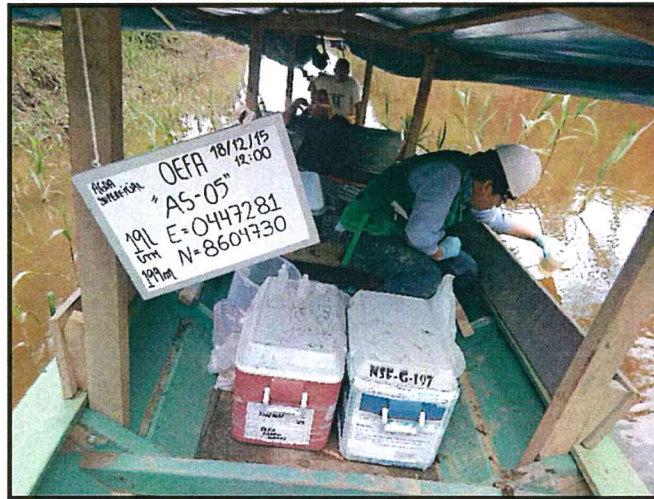 AGUA
SUPERFICIAL
OEFA 18/12/15
12:00
"AS-05"
19L
UTM
E=0447281
N=8604730
199m
NSF-G-197